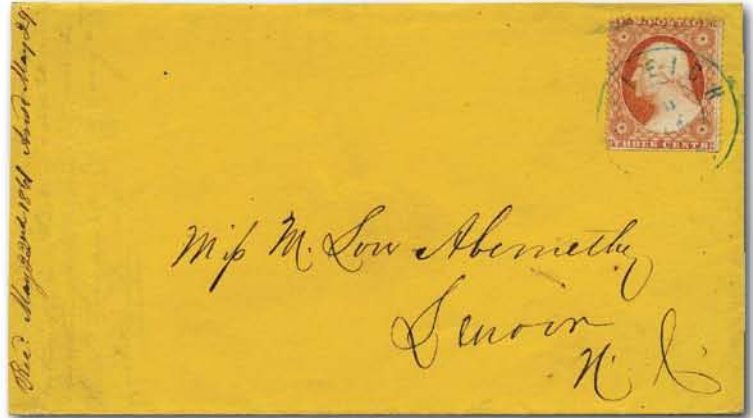 Recd May 22nd 1861 Ansd May 29.
U.S. POSTAGE
LEIGH
THREE CENTS
Miss M. Lou Abernethy
Lenoir
N. C.